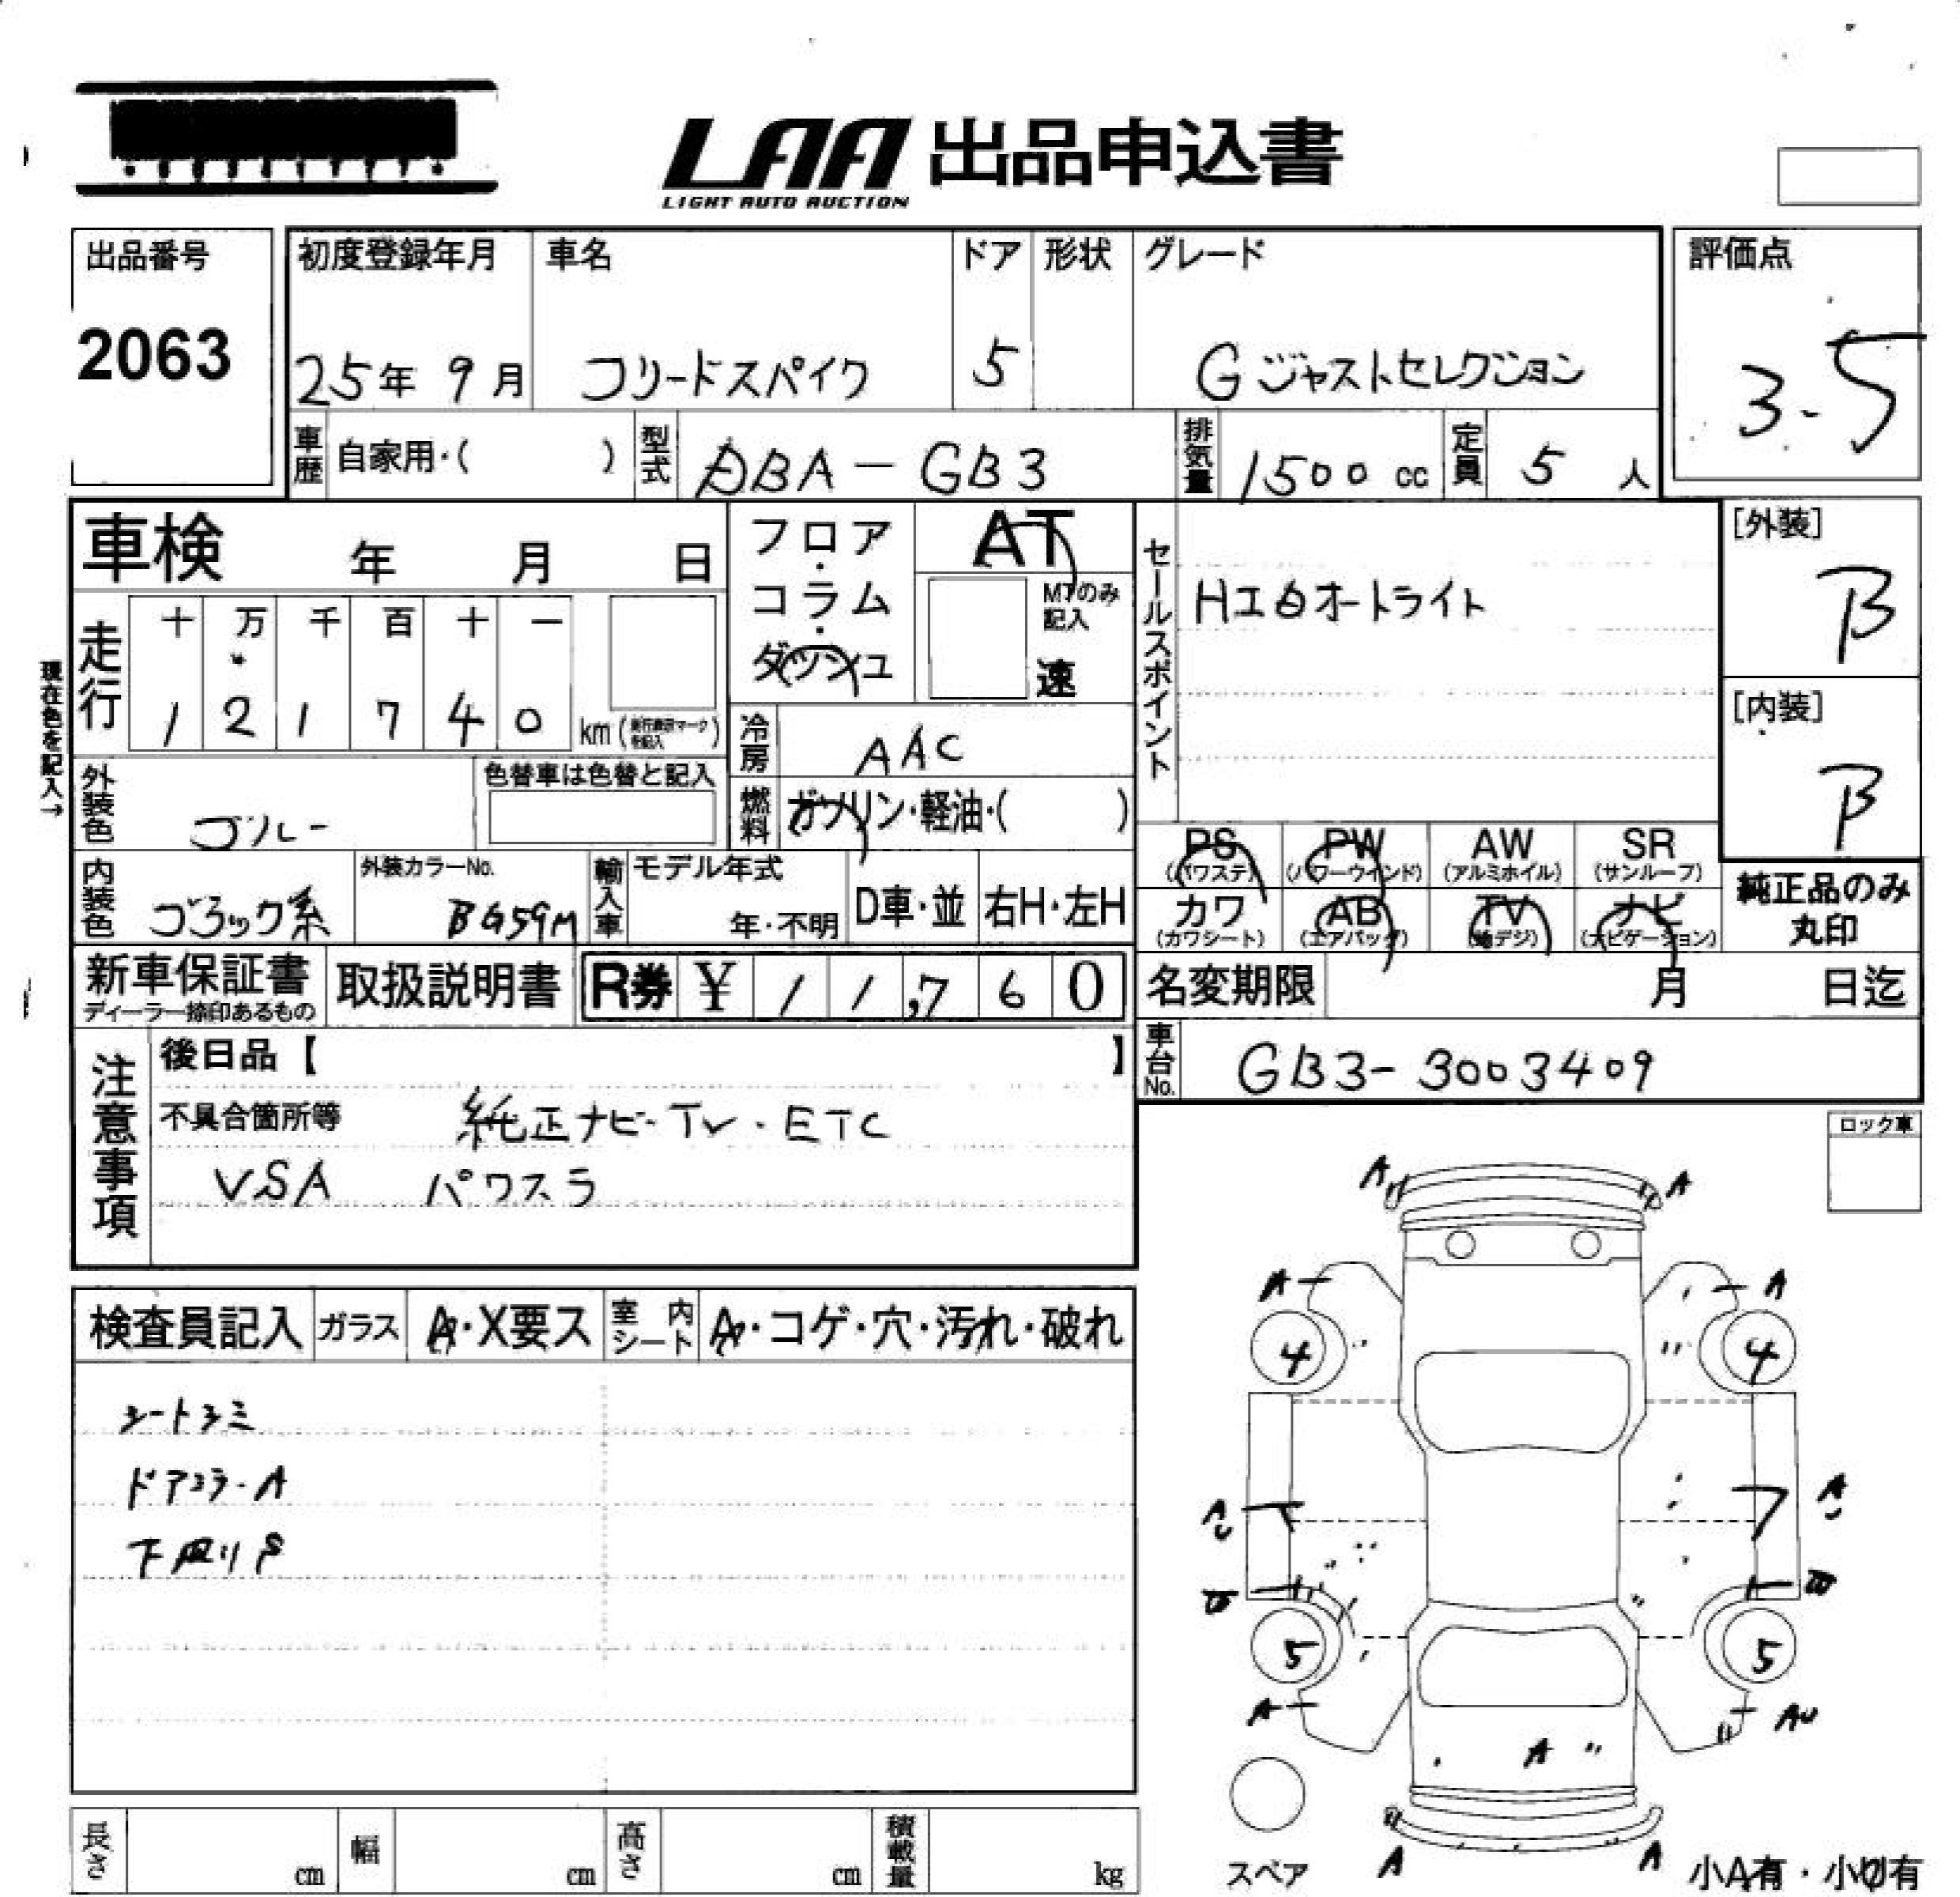 LAA 出品申込書
LIGHT AUTO AUCTION
出品番号 初度登録年月 車名 ドア 形状 グレード 評価点
2063 25年 9月 フリードスパイク 5 Gジャストセレクション 3.5
車歴 自家用・( ) 型式 DBA-GB3 排気量 1500 cc 定員 5 人
車検 年 月 日 フロア・コラム・ダッシュ AT セールスポイント [外装]
B
MTのみ記入
速
HIDオートライト
現在色を記入→
走行 十 万 千 百 十 一
1 2 1 7 4 0 km
[内装]
B
冷房 AAC
外装色 ブルー 色替車は色替と記入 燃料 ガソリン・軽油・( )
PS PW AW SR
(パワステ) (パワーウインド) (アルミホイル) (サンルーフ)
純正品のみ
丸印
内装色 ブラック系 外装カラーNo. BG59M 輸入車 モデル年式 年・不明 D車・並 右H・左H
カワ AB TV ナビ
(カワシート) (エアバッグ) (地デジ) (ナビゲーション)
新車保証書 取扱説明書 R券 ¥ 11,760 名変期限 月 日迄
ディーラー捺印あるもの
車台No. GB3-3003409
注意事項 後日品【 】
不具合箇所等 純正ナビ・TV・ETC
VSA パワスラ
ロック車
A A
A A
4 4
検査員記入 ガラス A・X要ス 室内シート A・コゲ・穴・汚れ・破れ
シートシミ
ドアコラーA
下廻りS
A A
5 5
A AU
A
スペア A A 小A有・小U有
長さ cm 幅 cm 高さ cm 積載量 kg